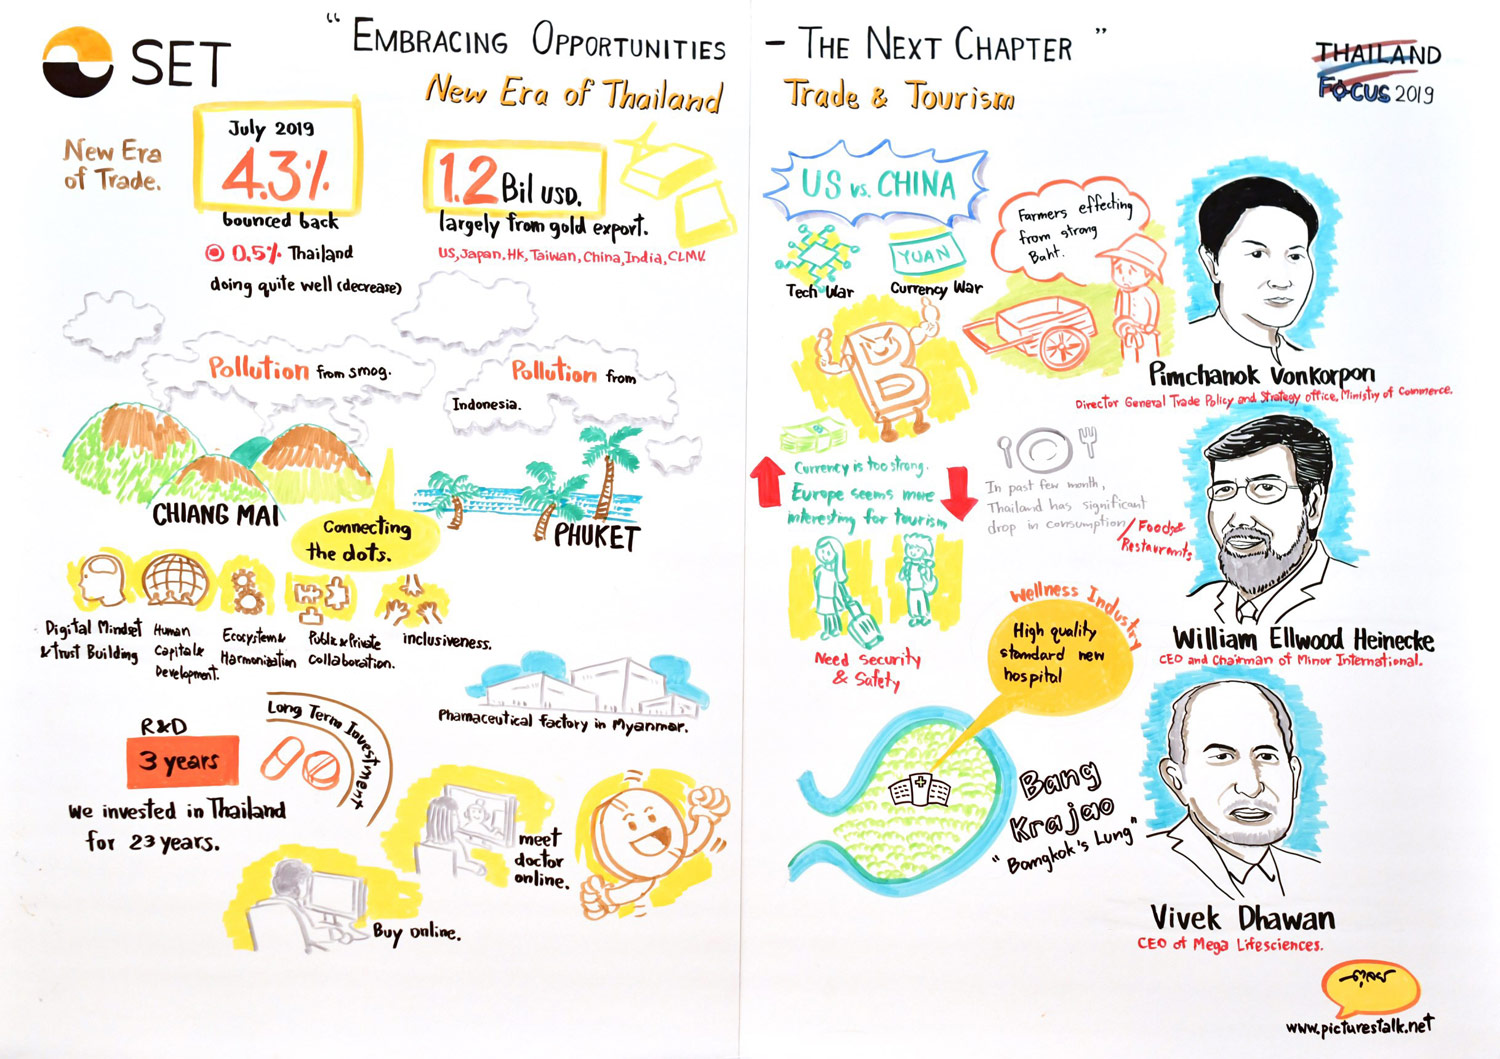 SET
" EMBRACING OPPORTUNITIES - THE NEXT CHAPTER "
New Era of Thailand Trade & Tourism
THAILAND
FOCUS 2019
New Era
of Trade.
July 2019
4.3%
bounced back
0.5% Thailand
doing quite well (decrease)
1.2 Bil USD.
largely from gold export.
US, Japan, Hk, Taiwan, China, India, CLMV.
Pollution from smog.
Pollution from
Indonesia.
CHIANG MAI
PHUKET
Connecting
the dots.
Digital Mindset
& trust Building
Human
Capital &
Development.
Ecosystem &
Harmonization
Public & Private
collaboration.
inclusiveness.
R&D
3 years
Long Term Investment
We invested in Thailand
for 23 years.
Phamaceutical factory in Myanmar.
meet
doctor
online.
Buy online.
US vs. CHINA
Tech War
YUAN
Currency War
Farmers effecting
from strong
Baht.
B
Currency is too strong.
Europe seems more
interesting for tourism
Need security
& Safety
In past few month,
Thailand has significant
drop in consumption
/Foods &
Restaurants
Wellness Industry
High quality
standard new
hospital
Bang
Krajao
"Bangkok's Lung"
Pimchanok Vonkorpon
Director General Trade Policy and Strategy office, Ministry of Commerce.
William Ellwood Heinecke
CEO and Chairman of Minor International.
Vivek Dhawan
CEO of Mega Lifesciences.
www.picturestalk.net